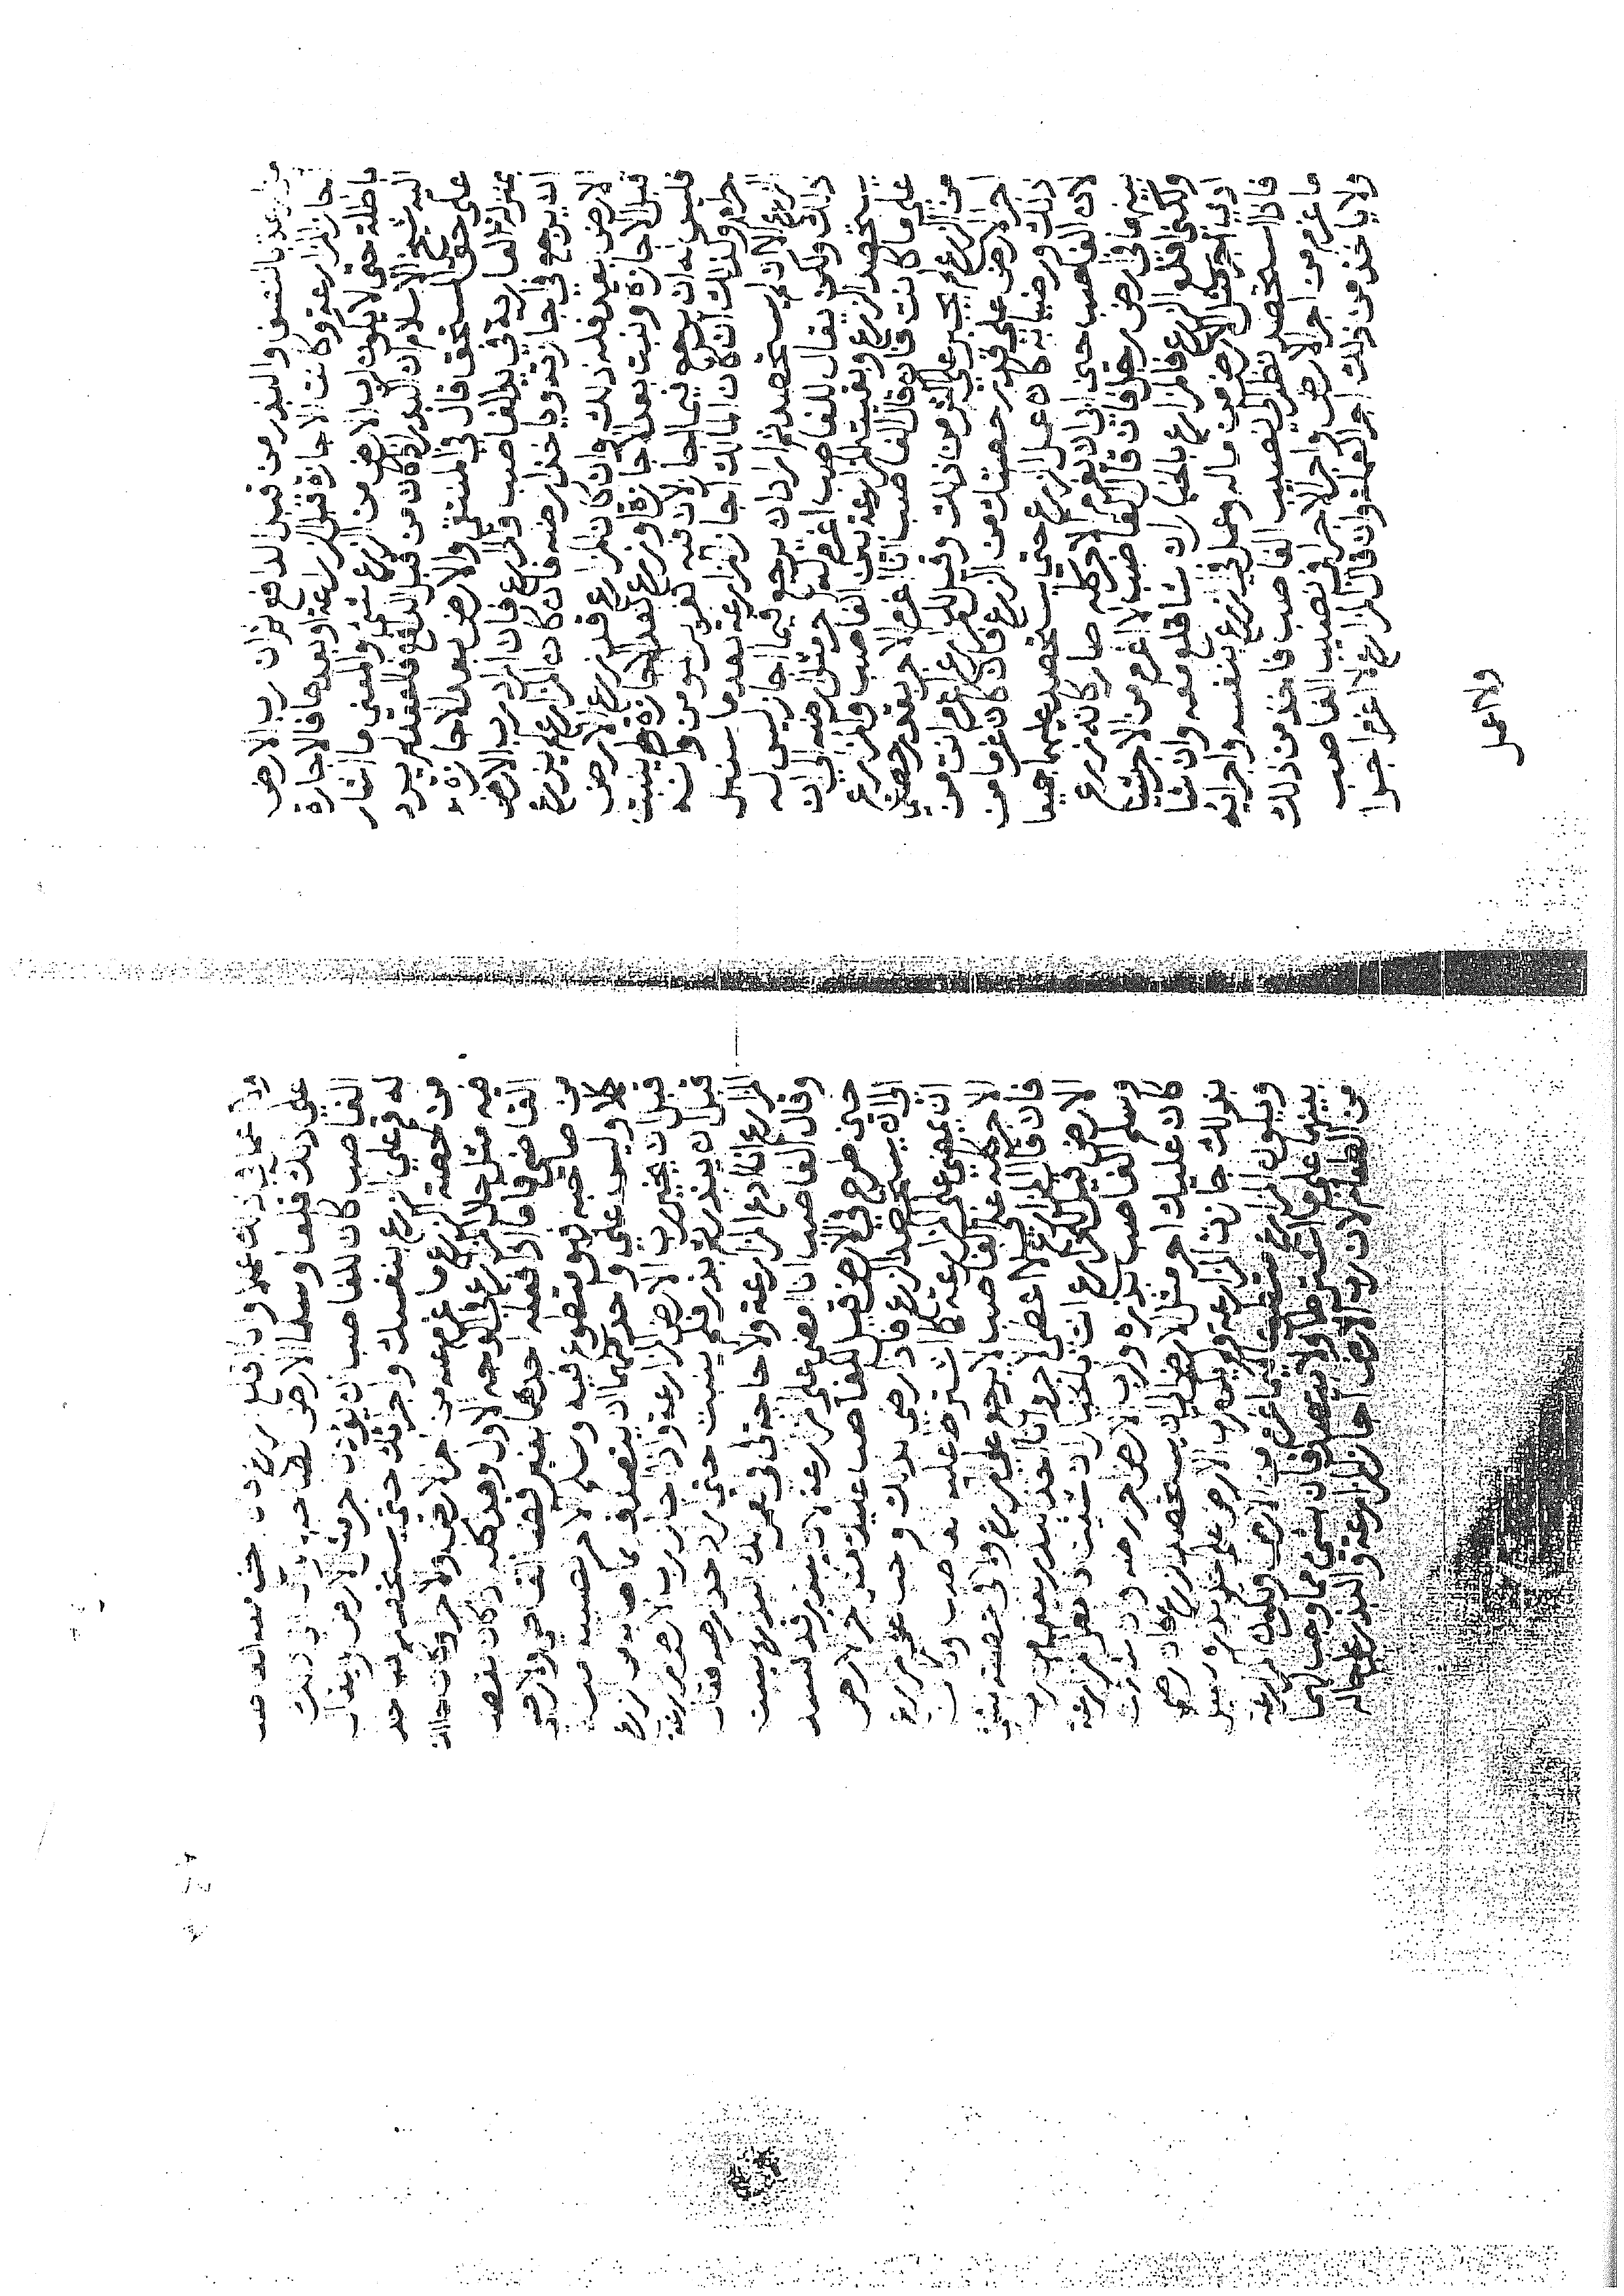 مزارعة بالنصف والبذر من قبل الدافع ثم ان رب الارض
جاز المزارعة وكانت الاجازة قبل الزراعة او بعدها فالاجازة
باطلة حتى لا يكون لرب الارض من الزرع شي والمعنى ما اشار
اليه شيخ الاسلام ان البذر اذا كان من قبل الدافع فالعقد لم يرد
على حق المستحق قال في المنتقى والارض بعد الاجازة
بمنزلة العارية في يد الغاصب والمزارع فان اراد رب الارض
ان يرجع في اجازته وياخذ ارضه فان كان المزارع لم يزرع
الارض بعد فله ذلك وان كان المزارع قد زرع الارض
قبل الاجازة ونبت بعد الاجازة او زرع بعد الاجازة فلم ينبت
فليس له ان يرجع فيما اجاز لان فيه تغرير مومن وانه
حرام وكذلك ان كان المالك اجاز المزارعة بعد ما سنبل
الزرع الا انه لم يستحصد ثم اراد ان يرجع فيما اجاز ليس له
ذلك ولكن يقال للغاصب اغرم له اجر مثل ارضه الى ان
يستحصد الزرع وبقيت المزارعة بين الغاصب والمزارع
على ما كانت فان قال الغاصب انا اغرم الاجر بقدر حصتي
من الزرع لم يجبر على اكثر من ذلك وقيل للمزارع اغرم انت من
اجر الارض على قدر حصتك من الزرع فان كان غرما من
ذلك ورضيا به كان عمل الزرع حتى يستحصد عليهما جميعا
لان الغاصب حين ابى ان يغرم الاجر كله صار كانه زرع
بينهما في ارض رجل فان قال الغاصب لا اغرم من الاجر شيئا
ولكني اقلع الزرع فالمزارع بالخيار ان شا قلع معه وان شا
ادى اجر مثل الارض من ماله وعمل في الزرع بنفسه واجرائه
فاذا استحصد نظر الى نصيب الغاصب فاخذ من ذلك
ما غرم من اجر الارض واجر الاجرا في نصيب الغاصب
ولا ياخذ من ذلك اجرا لعمله وان قال المزارع لا اغرم اجرا
ولا اعمل
في ذلك عملا ولكن اقلع الزرع فان اجتمع معه الغاصب
على ذلك قلعا وسلما الارض لصاحبها وان ابى ذلك
الغاصب كان للغاصب ان يودي اجر مثل الارض ويقال
له قم على الزرع بنفسك واجرائك حتى يستحصد
من حصة المزارع ما غرم عنه من اجر الارض والاجرا وكان حاله
فيه مثل حال المزارع في الوجه الاول وهذا كله اذا كان بقضا
القاضي فاما اذا فعله احدهما بغير قضا القاضي ولا رضى
من صاحبه فهو متطوع فيه وسلم للاخر نصيبه من
كلا وليس على واحد منهما ان يتصدق بما صار له من الزرع
قبل ان يجيز رب الارض المزارعة واذا اجاز رب الارض المزارعة
قبل ان يبذر او بذر فلم ينبت حتى اراد اخذ ارضه فقال
المزارع انا ادع المزارعة ولا حاجة لي في البذر لم ينبت
وقال الغاصب انا امضي على المزارعة لان البذر قد فسد
حين طرح في الارض قيل للغاصب عليك مثل اجر الارض
الى ان يستحصد الزرع فان رضي بذلك وجب على المزارع
ان يمضي على المزارعة كما شرط عليه الغاصب وكان
الاجر كله على الغاصب لا يرجع على المزارع ولا في حصته بشي
فان قال المزارع لا اعطي الاجر وانا اخذ بذري بعينه من
الارض قيل للمزارع انت بالخيار ان شئت فابطل المزارعة
وسلم الغاصب بذره ورب الارض اخذ ارضه وان شئت
كان عليك اجر مثل الارض الى ان يستحصد الزرع فان رضي
بذلك جازت المزارعة ولم يكن لرب الارض على اخذ بذره سبيل
ويكون المزارع متطوعا فيما غرم من الارض ويكون المزارعة
بينهما على ما اشترطا ولا يتصدقان بشي مما وجب لهما
من الطعام لان رب الارض اجاز المزارعة والبذر على حاله